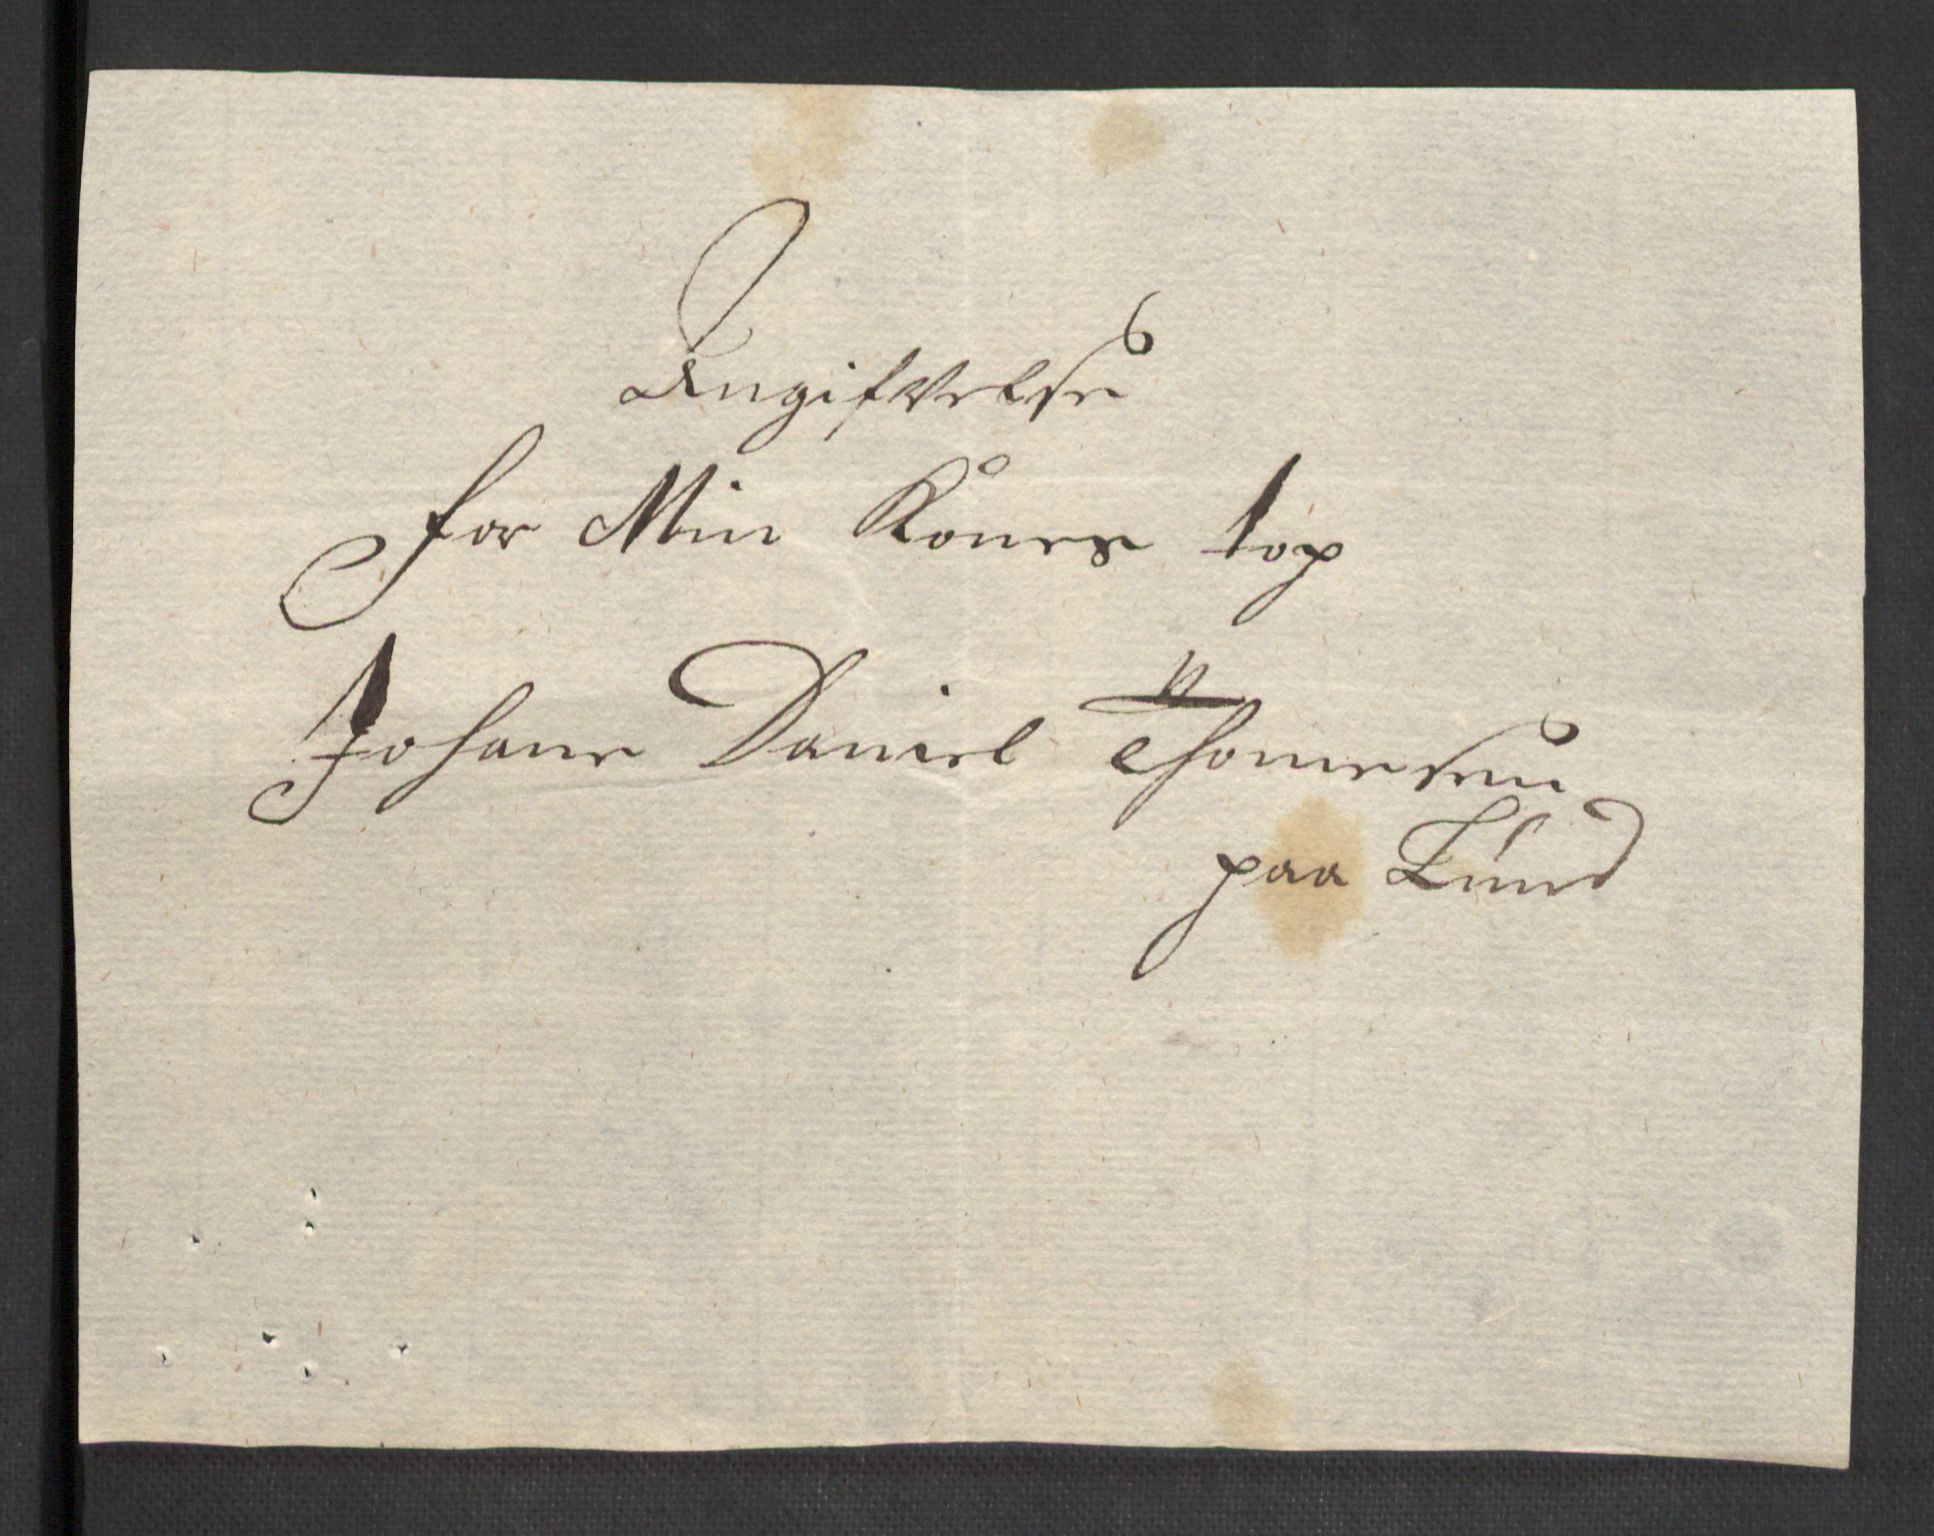 Angifvelse
for Min Kones top
Johane Daniel Thomesen
paa Lund